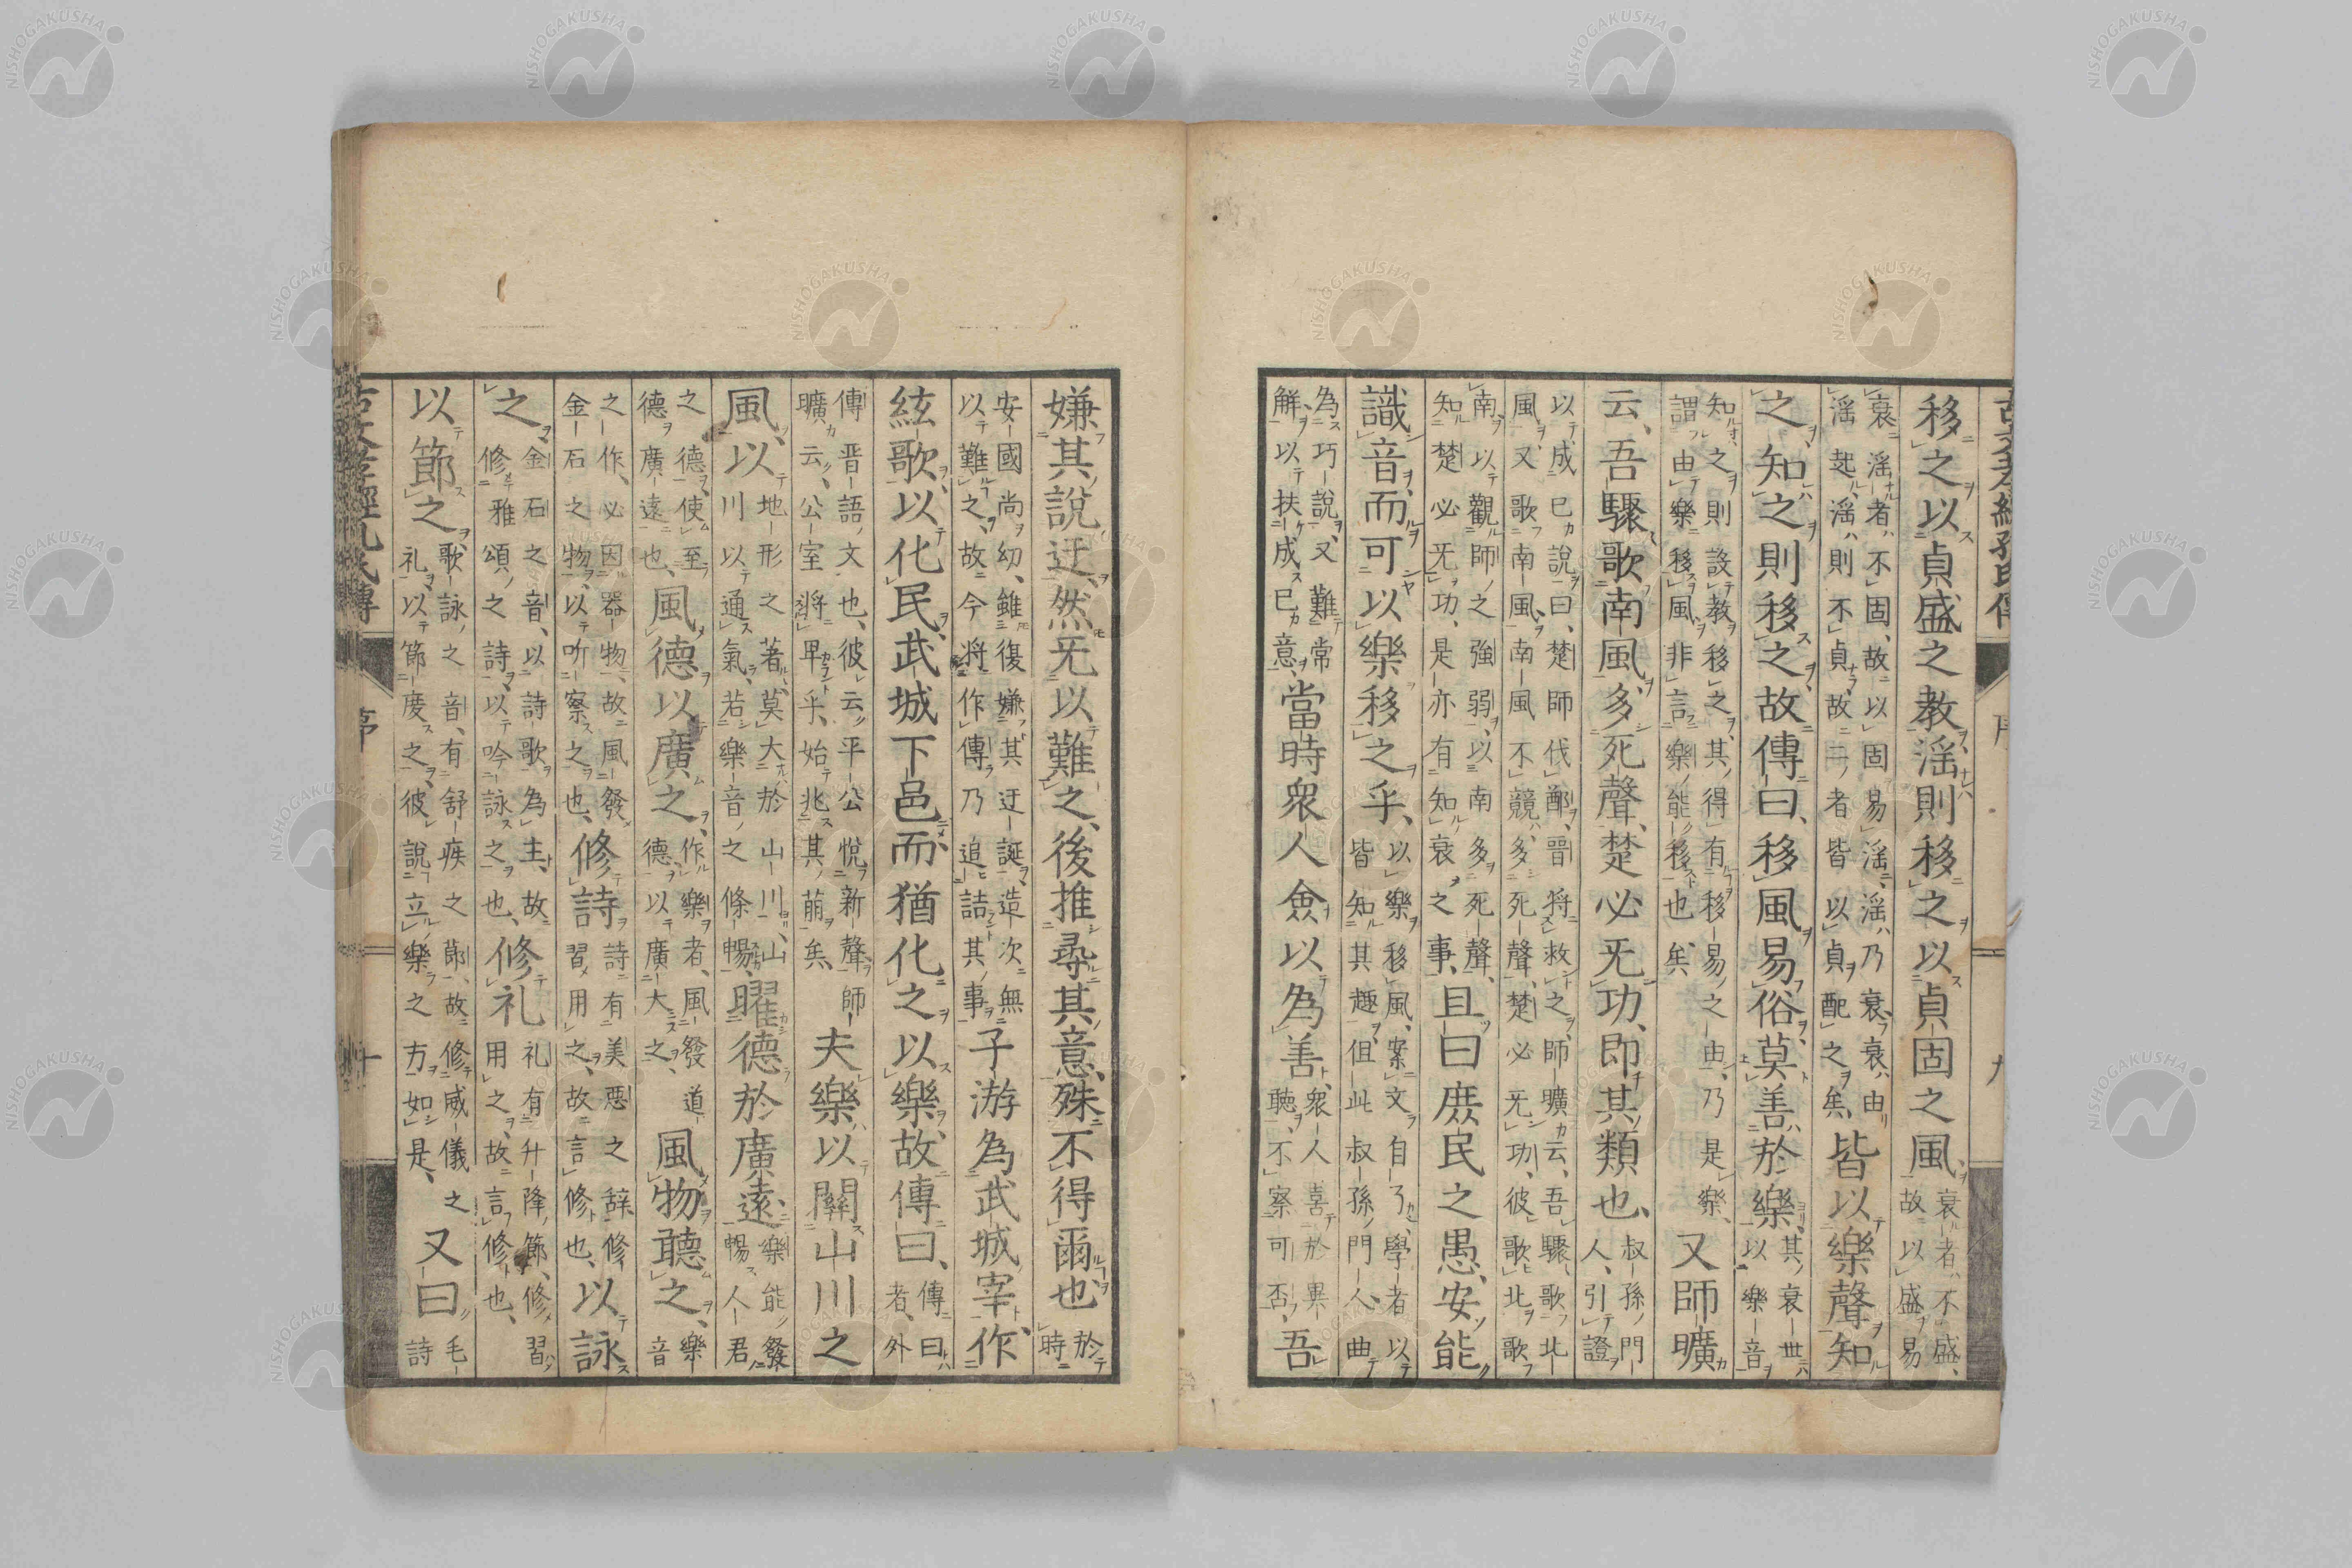 古文孝經孔氏傳
序
九
移之以貞盛之教滛則移之以貞固之風衰者不盛故以盛易
衰滛者不固故以固易滛滛乃衰衰由滛起滛則不貞故二者皆以貞配之矣皆以樂聲知
之知之則移之故傳曰移風易俗莫善於樂其衰世以樂音
知之則設教移之其得有移易之由乃是樂謂由樂移風非言樂能移也矣又師曠
云吾驟歌南風多死聲楚必旡功即其類也叔孫門人引證
以成已說曰楚師伐鄭晋將救之師曠云吾驟歌北風又歌南風南風不競多死聲楚必旡功彼歌北歌
南以觀師之強弱以南多死聲知楚必旡功是亦有知衰之事且曰庶民之愚安能
識音而可以樂移之乎以樂移風案文自了學者以皆知其趣但此叔孫門人曲
為巧說又難常解以扶成已意當時衆人僉以為善衆人喜於異聽不察可否吾
嫌其說迂然旡以難之後推尋其意殊不得爾也於時
安國尚幼雖復嫌其迂誕造次無以難之故今將作傳乃追詰其事子游為武城宰作
絃歌以化民武城下邑而猶化之以樂故傳曰傳曰者外
傳晋語文也彼云平公悦新聲師曠云公室將卑乎始兆其萠矣夫樂以關山川之
風以地形之著莫大於山川山川以通氣若樂音之條暢曜德於廣遠樂能發暢人君
之德使至德廣遠也風德以廣之作樂者風發道德以廣大之風物聽之樂音
之作必因器物故風發金石之物以听察之也修詩詩有美惡之辞修習用之故言修也以詠
之金石之音以詩歌為主故修雅頌之詩以吟詠之也修礼礼有升降節修習用之故言修也
以節之歌詠之音有舒疾之節故修威儀之礼以節度之彼說立樂之方如是又曰毛詩
古文孝經孔氏傳
序
十